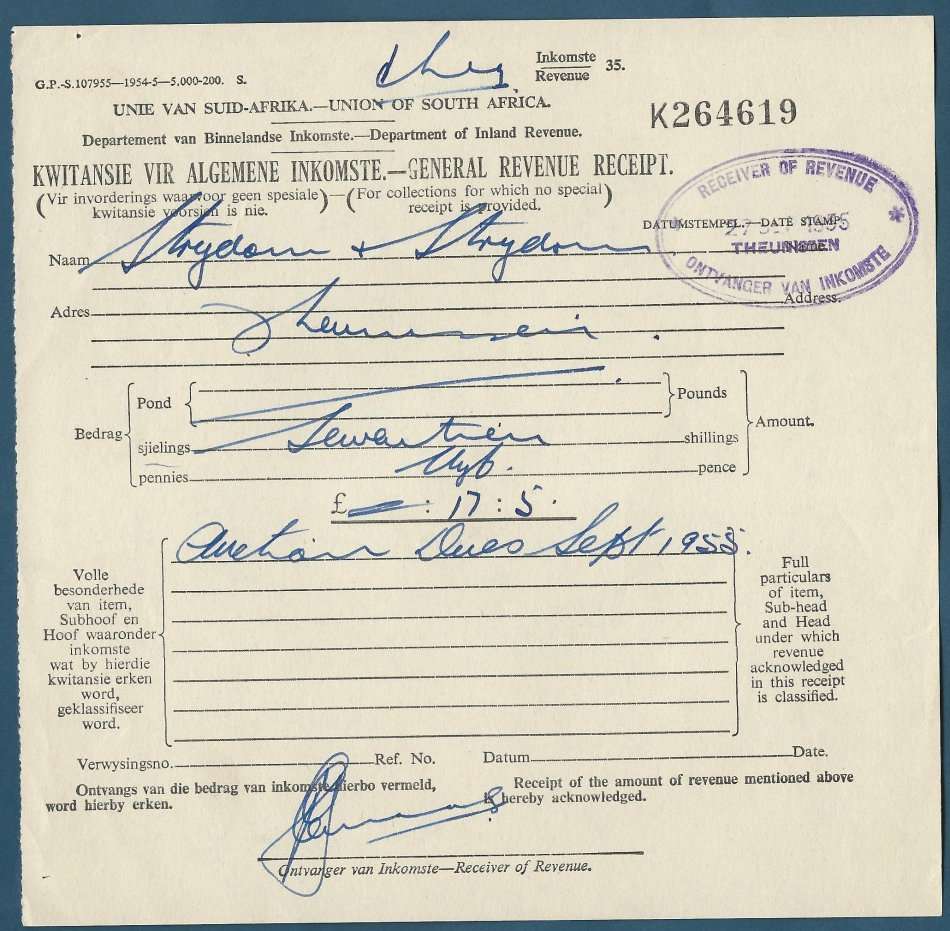 G.P.-S.107955—1954-5—5,000-200. S.
Inkomste
Revenue 35.
UNIE VAN SUID-AFRIKA.—UNION OF SOUTH AFRICA.
K264619
Departement van Binnelandse Inkomste.—Department of Inland Revenue.
KWITANSIE VIR ALGEMENE INKOMSTE.—GENERAL REVENUE RECEIPT.
(Vir invorderings waarvoor geen spesiale kwitansie voorsien is nie.)—(For collections for which no special receipt is provided.)
RECEIVER OF REVENUE
DATUMSTEMPEL.—DATE STAMP.
1955
THEUNISSEN
ONTVANGER VAN INKOMSTE
Naam Strydom + Strydom Name.
Adres Theunissen. Address.
Bedrag
Pond Pounds
sjielings Sewentien shillings
pennies Vyf. pence
Amount.
£ : 17 : 5.
Auction Dues Sept 1955.
Volle
besonderhede
van item,
Subhoof en
Hoof waaronder
inkomste
wat by hierdie
kwitansie erken
word,
geklassifiseer
word.
Full
particulars
of item,
Sub-head
and Head
under which
revenue
acknowledged
in this receipt
is classified.
Verwysingsno. Ref. No. Datum Date.
Ontvangs van die bedrag van inkomste hierbo vermeld,
word hierby erken.
Receipt of the amount of revenue mentioned above
is hereby acknowledged.
Ontvanger van Inkomste—Receiver of Revenue.